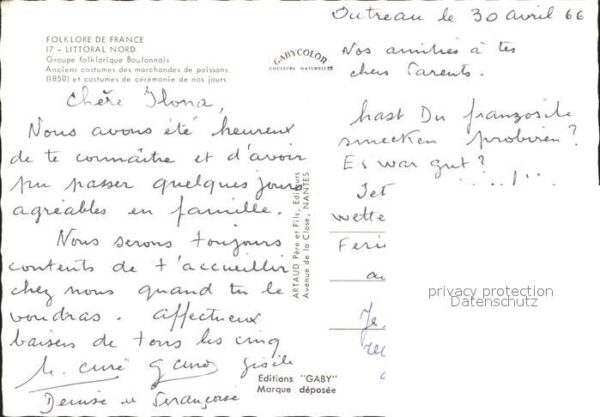 FOLKLORE DE FRANCE
17 - LITTORAL NORD
Groupe folklorique Boulonnais
Anciens costumes des marchandes de poissons
(1850) et costumes de cérémonie de nos jours
GABYCOLOR
COULEURS NATURELLES
Chère Ilona,
Nous avons été heureux
de te connaître et d'avoir
pu passer quelques jours
agréables en famille.
Nous serons toujours
contents de t'accueillir
chez nous quand tu le
voudras. Affectueux
baisers de tous les cinq
Gisèle
Denise et Françoise
ARTAUD Père et Fils, Editeurs
Avenue de la Close, NANTES
Editions "GABY"
Marque déposée
Outreau le 30 avril 66
Nos amitiés à tes
chers Parents.
hast Du französische
smecken probiren?
Es war gut?
Jet
wette
Feri
au
Je
privacy protection
Datenschutz